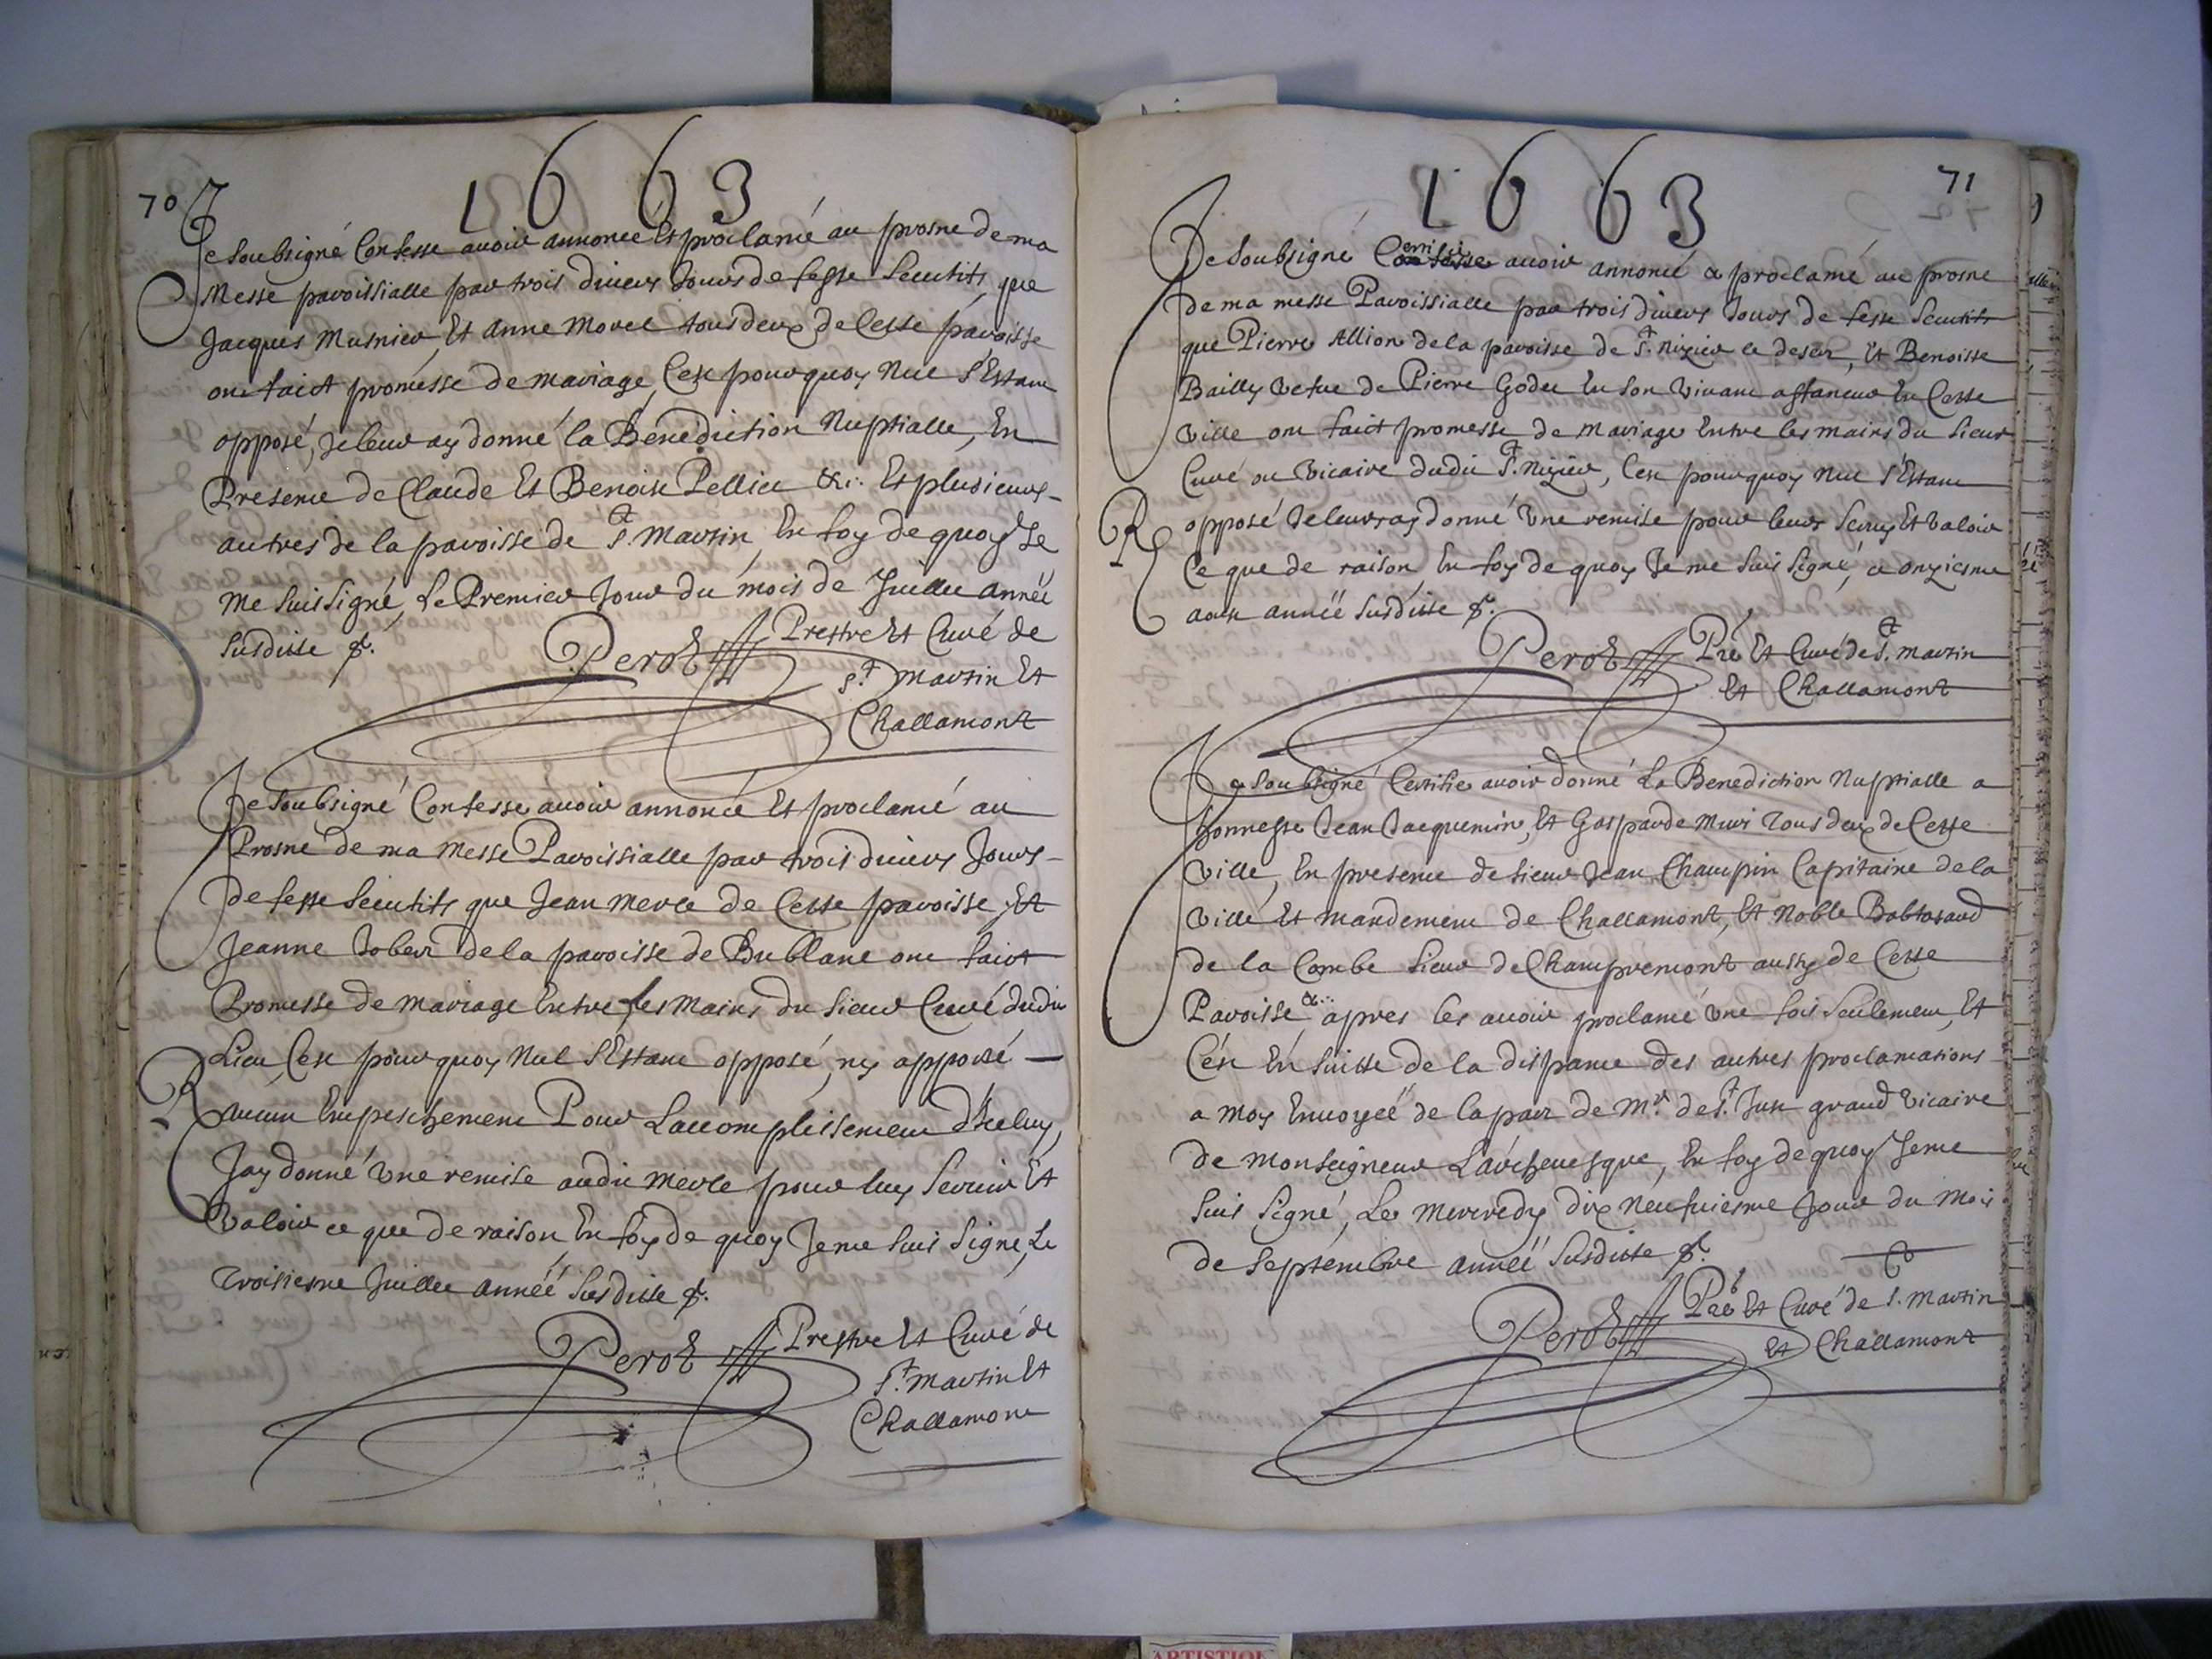 70
1663
Je Soubsigné Confesse avoir annoncé Et proclamé au prosne de ma
Messe paroissialle par trois divers Jours de feste Secutifs que
Jacques Musnier, Et Anne Morel tous deux de Cette paroisse
ont faict promesse de mariage, C'est pourquoy Nul s'Estant
opposé, Je leur ay donné la Benediction Nuptialle, En
Presence de Claude Et Benoist Pellier &c. Et plusieurs
autres de la paroisse de St. Martin, En foy de quoy Je
me suis signé, Le Premier Jour du mois de Juillet année
susditte &.
Perot Prestre Et Curé de
St. Martin Et
Challamont
Je Soubsigné Confesse avoir annoncé Et proclamé au
Prosne de ma Messe Paroissialle par trois divers Jours
de feste Secutifs que Jean Merle de Cette paroisse, Et
Jeanne Jobert de la paroisse de Bublane ont faict
Promesse de mariage Entre les Mains du Sieur Curé dudit
Lieu, C'est pourquoy Nul s'Estant opposé, ny apporté
R
aucun Empeschement Pour L'accomplissement d'Iceluy,
J'ay donné Une remise audit Merle pour luy Servir Et
Valoir ce que de raison En foy de quoy Je me suis signé, Le
troisiesme Juillet année susditte &.
Perot Prestre Et Curé de
St. Martin Et
Challamont
1663
71
Je Soubsigné Certifie avoir annoncé & proclamé au prosne
de ma messe Paroissialle par trois divers Jours de feste Secutifs
que Pierre Allion de la paroisse de St. Nizier le desert, Et Benoiste
Bailly Vefve de Pierre Godet En son Vivant affaneur En Cette
Ville ont faict promesse de mariage Entre les mains du Sieur
Curé ou Vicaire dudit St. Nizier, C'est pourquoy Nul s'Estant
R opposé Je leurs ay donné Une remise pour leurs Servir Et Valoir
Ce que de raison, En foy de quoy Je me suis signé, ce onziesme
aoust année susditte &.
Perot Pre Et Curé de St. Martin
Et Challamont
Je Soubsigné Certifie avoir donné La Benediction Nuptialle a
honneste Jean Jacquemin, Et Gasparde Muri Tous deux de Cette
Ville, En presence de Sieur Jean Champin Capitaine de la
Ville Et mandement de Challamont, Et Noble Baltasard
de la Combe Sieur de Champremont aussy de Cette
Paroisse &c. apres les avoir proclamé Une fois Seulement, Et
C'est En suitte de la dispance des autres proclamations
a moy Envoyeé de la part de Mr. de St. Just grand Vicaire
de Monseigneur L'archevesque, En foy de quoy Je me
suis signé, Le Mercredy dix Neufviesme Jour du Mois
de Septembre année susditte &.
Perot Pre Et Curé de St. Martin
Et Challamont